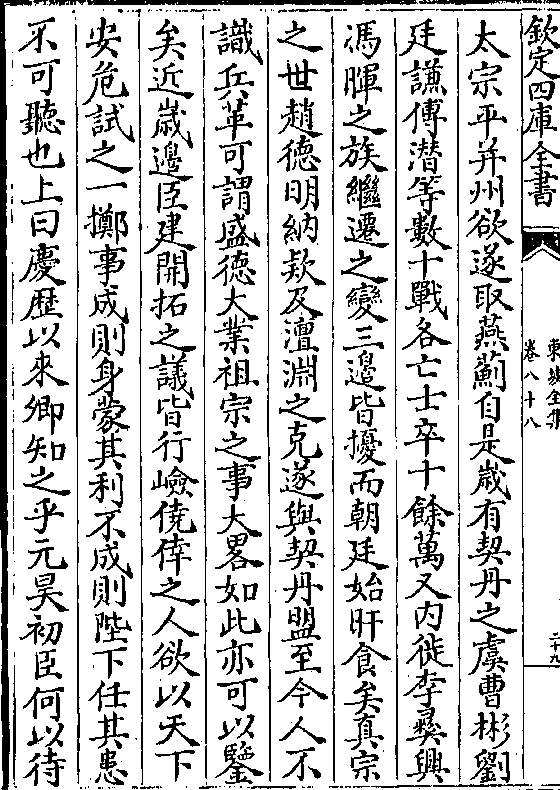 欽定四庫全書
東坡全集
卷八十八
二十九
太宗平并州欲遂取燕薊自是嵗有契丹之虞曹彬劉
廷謙傅潜等數十戰各亡士卒十餘萬又内徙李彞興
馮暉之族繼遷之變三邉皆擾而朝廷始旰食矣真宗
之世趙德明納欵及澶淵之克遂與契丹盟至今人不
識兵革可謂盛德大業祖宗之事大畧如此亦可以鑒
矣近嵗邉臣建開拓之議皆行嶮僥倖之人欲以天下
安危試之一擲事成則身蒙其利不成則陛下任其患
不可聽也上曰慶歴以來卿知之乎元昊初臣何以待